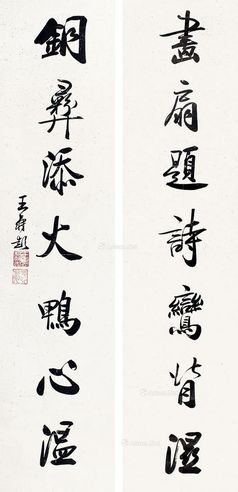 畫扇題詩鸞背濕
銅彝添火鴨心溫